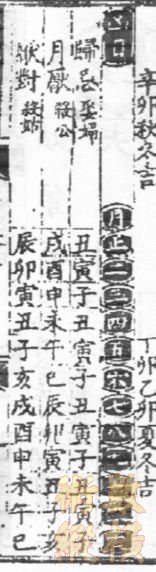 辛卯秋冬吉 丁卯乙卯夏冬吉
凶日 月正二三四五六七八
歸忌娶婦 丑寅子丑寅子丑寅子丑寅子
月厭殺公 戌酉申未午巳辰卯寅丑子亥
厭對殺姑 辰卯寅丑子亥戌酉申未午巳